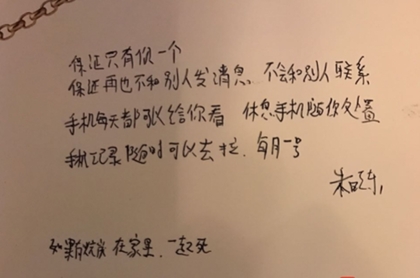 保证只有你一个
保证再也不和别人发消息 不会和别人联系
手机每天都可以给你看 休息手机随你处置
手机记录随时可以去拉. 每月一号
如果 在家里. 一起死